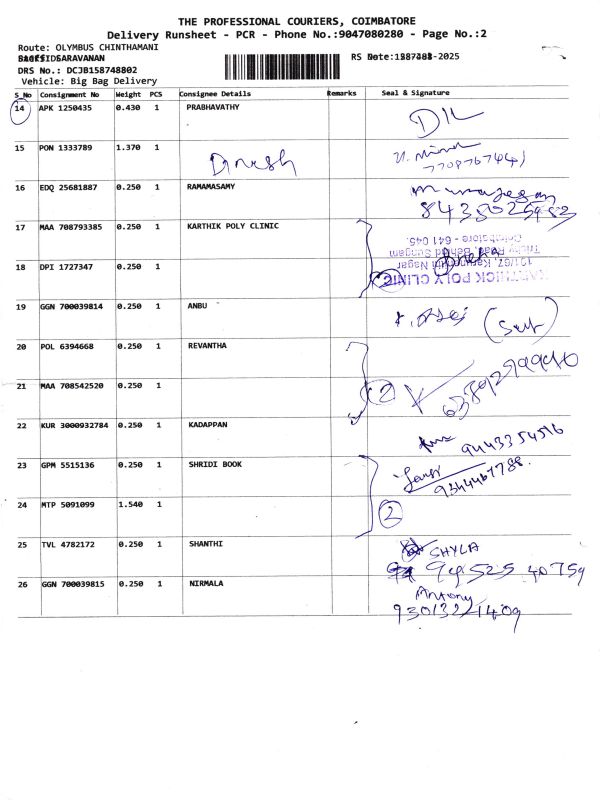 THE PROFESSIONAL COURIERS, COIMBATORE
Delivery Runsheet - PCR - Phone No.:9047080280 - Page No.:2
Route: OLYMBUS CHINTHAMANI
SARAVANAN
RS -2025
DRS No.: DCJB158748802
Vehicle: Big Bag Delivery
S_No Consignment No Weight PCS Consignee Details Remarks Seal & Signature
14 APK 1250435 0.430 1 PRABHAVATHY
15 PON 1333789 1.370 1 Dinesh
16 EDQ 25681887 0.250 1 RAMAMASAMY
17 MAA 708793385 0.250 1 KARTHIK POLY CLINIC
18 DPI 1727347 0.250 1
KARTHICK POLY CLINIC
191/97, Karunanithi Nagar
Trichy Road, Behind Sungam
Coimbatore - 641 045.
19 GGN 700039814 0.250 1 ANBU
20 POL 6394668 0.250 1 REVANTHA
21 MAA 708542520 0.250 1 2
22 KUR 3000932784 0.250 1 KADAPPAN 9443354516
23 GPM 5515136 0.250 1 SHRIDI BOOK 9344467788
24 MTP 5091099 1.540 1 2
25 TVL 4782172 0.250 1 SHANTHI SHYLA
99525 40759
26 GGN 700039815 0.250 1 NIRMALA Antony